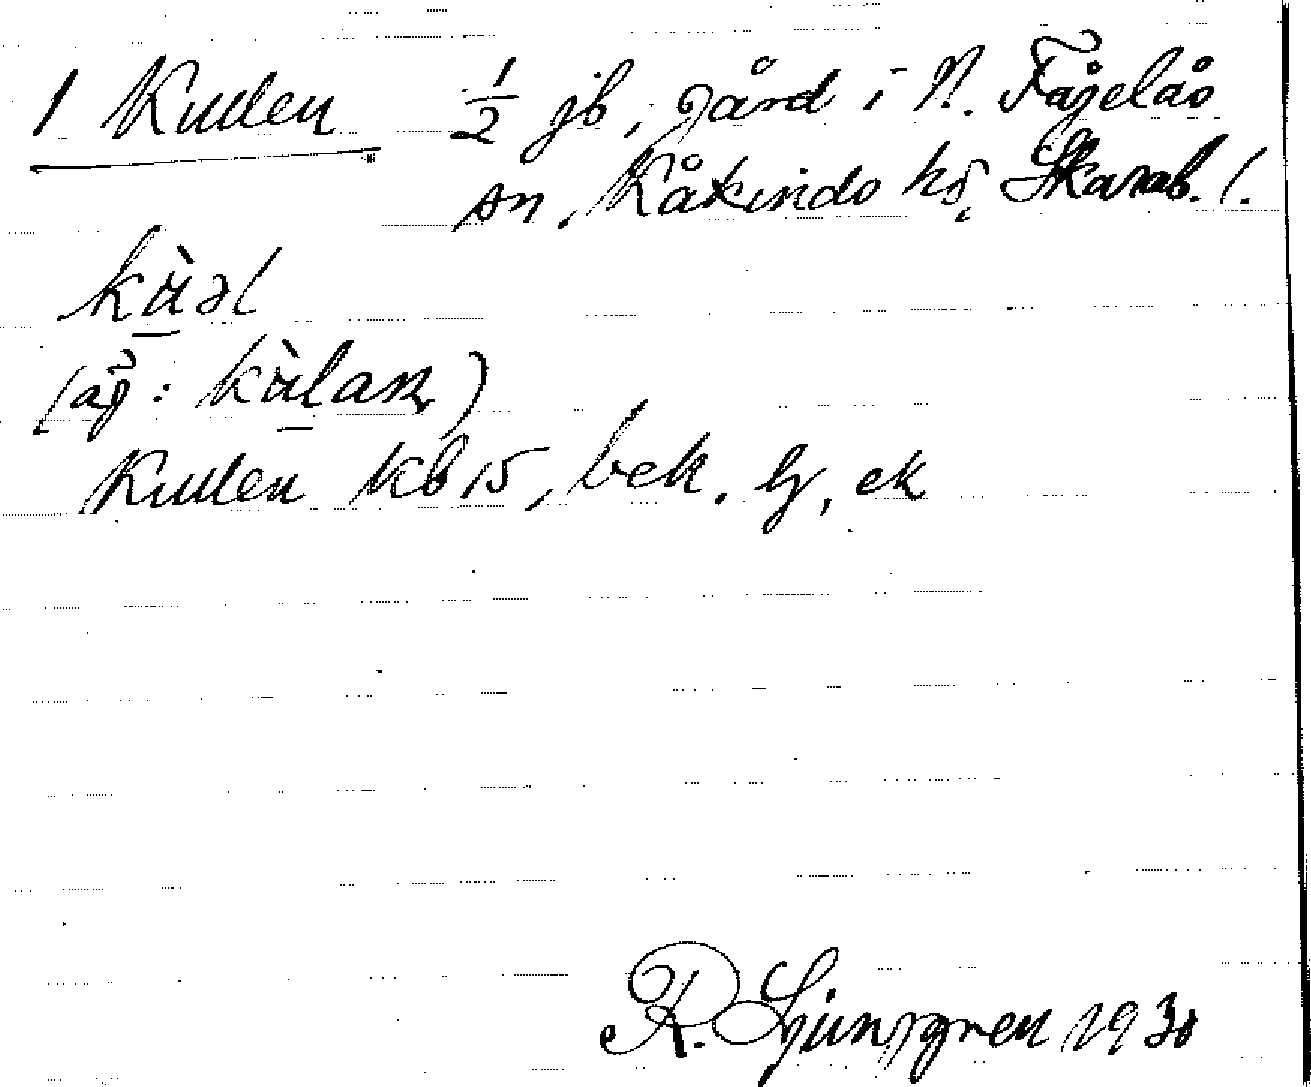 1 Kullen 1/2 jb, gård i N. Fågelås
sn, Kåkinds hd, Skarab. l.
(äg :
Kullen kb 15, bek. Lj, ek
R. Ljunggren 1930